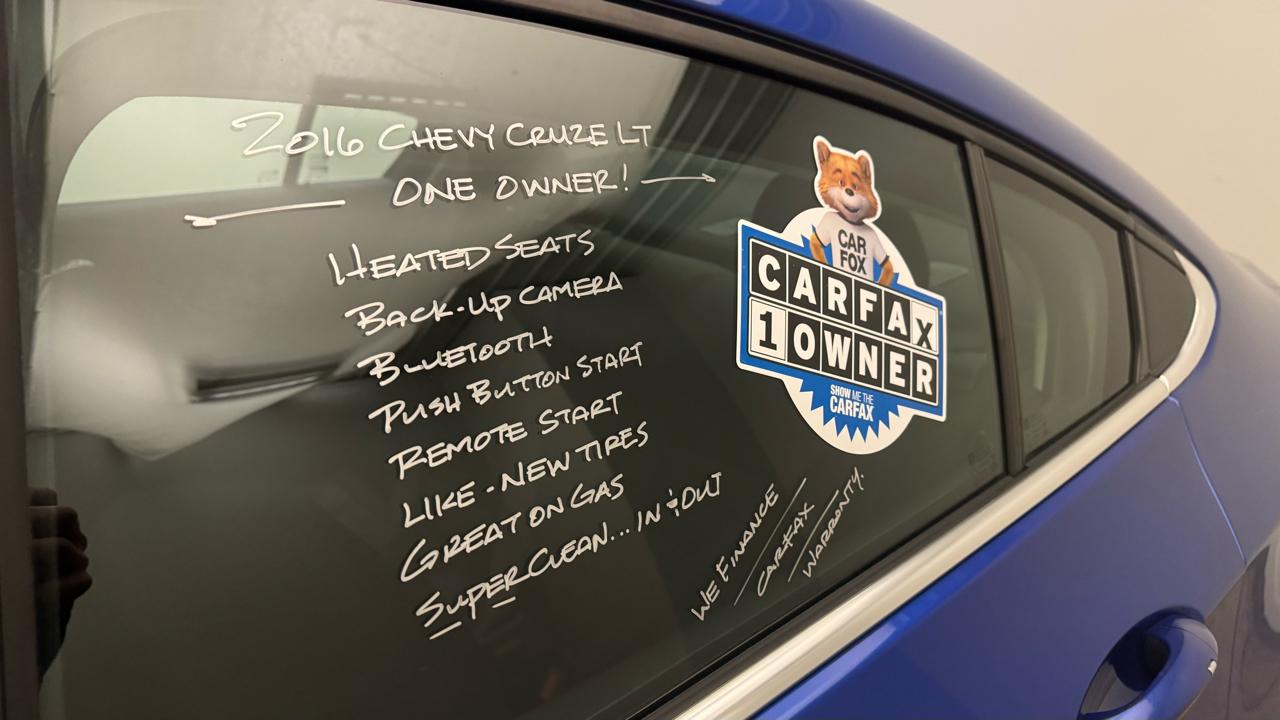 2016 CHEVY CRUZE LT
ONE OWNER!
HEATED SEATS
BACK-UP CAMERA
BLUETOOTH
PUSH BUTTON START
REMOTE START
LIKE-NEW TIRES
GREAT ON GAS
SUPER CLEAN... IN & OUT
WE FINANCE
CARFAX
WARRONTY.
CAR
FOX
CARFAX
1 OWNER
SHOW ME THE
CARFAX